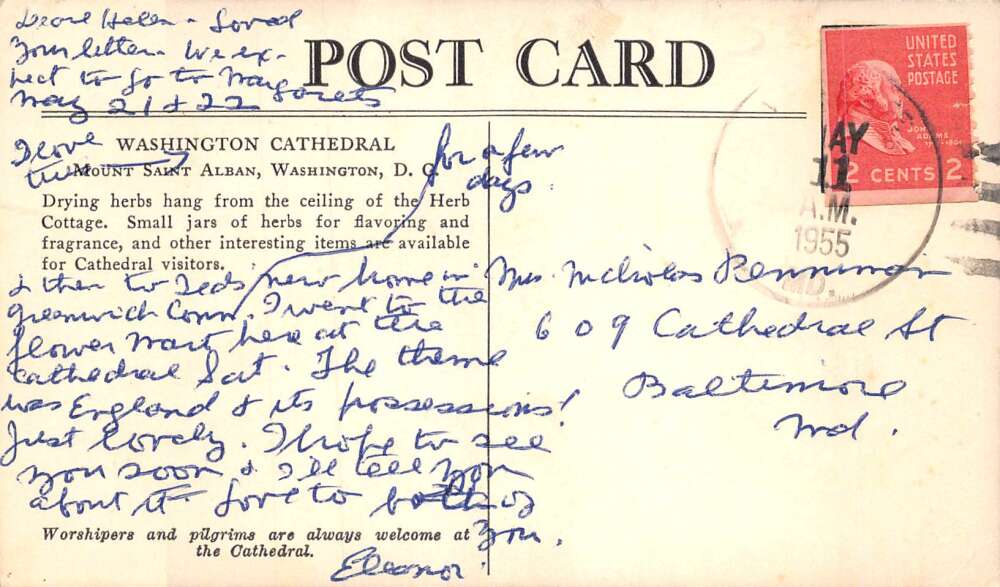 Dear Helen - Loved
your letter. We ex-
pect to go to Margarets
May 21 & 22
POST CARD
UNITED
STATES
POSTAGE
JOHN
ADAMS
2 CENTS 2
MAY
11
A.M.
1955
MD.
I love
this
WASHINGTON CATHEDRAL
MOUNT SAINT ALBAN, WASHINGTON, D. C.
Drying herbs hang from the ceiling of the Herb
Cottage. Small jars of herbs for flavoring and
fragrance, and other interesting items are available
for Cathedral visitors.
for a few
days
& then to Teds new home in
Greenwich Conn. I went to the
flower mart here at the
cathedral Sat. The theme
was England & its possessions!
Just lovely. I hope to see
you soon & I'll tell you
about it. Love to both of
you.
Eleanor
Mrs. Nicholas Penniman
609 Cathedral St
Baltimore
Md.
Worshipers and pilgrims are always welcome at
the Cathedral.